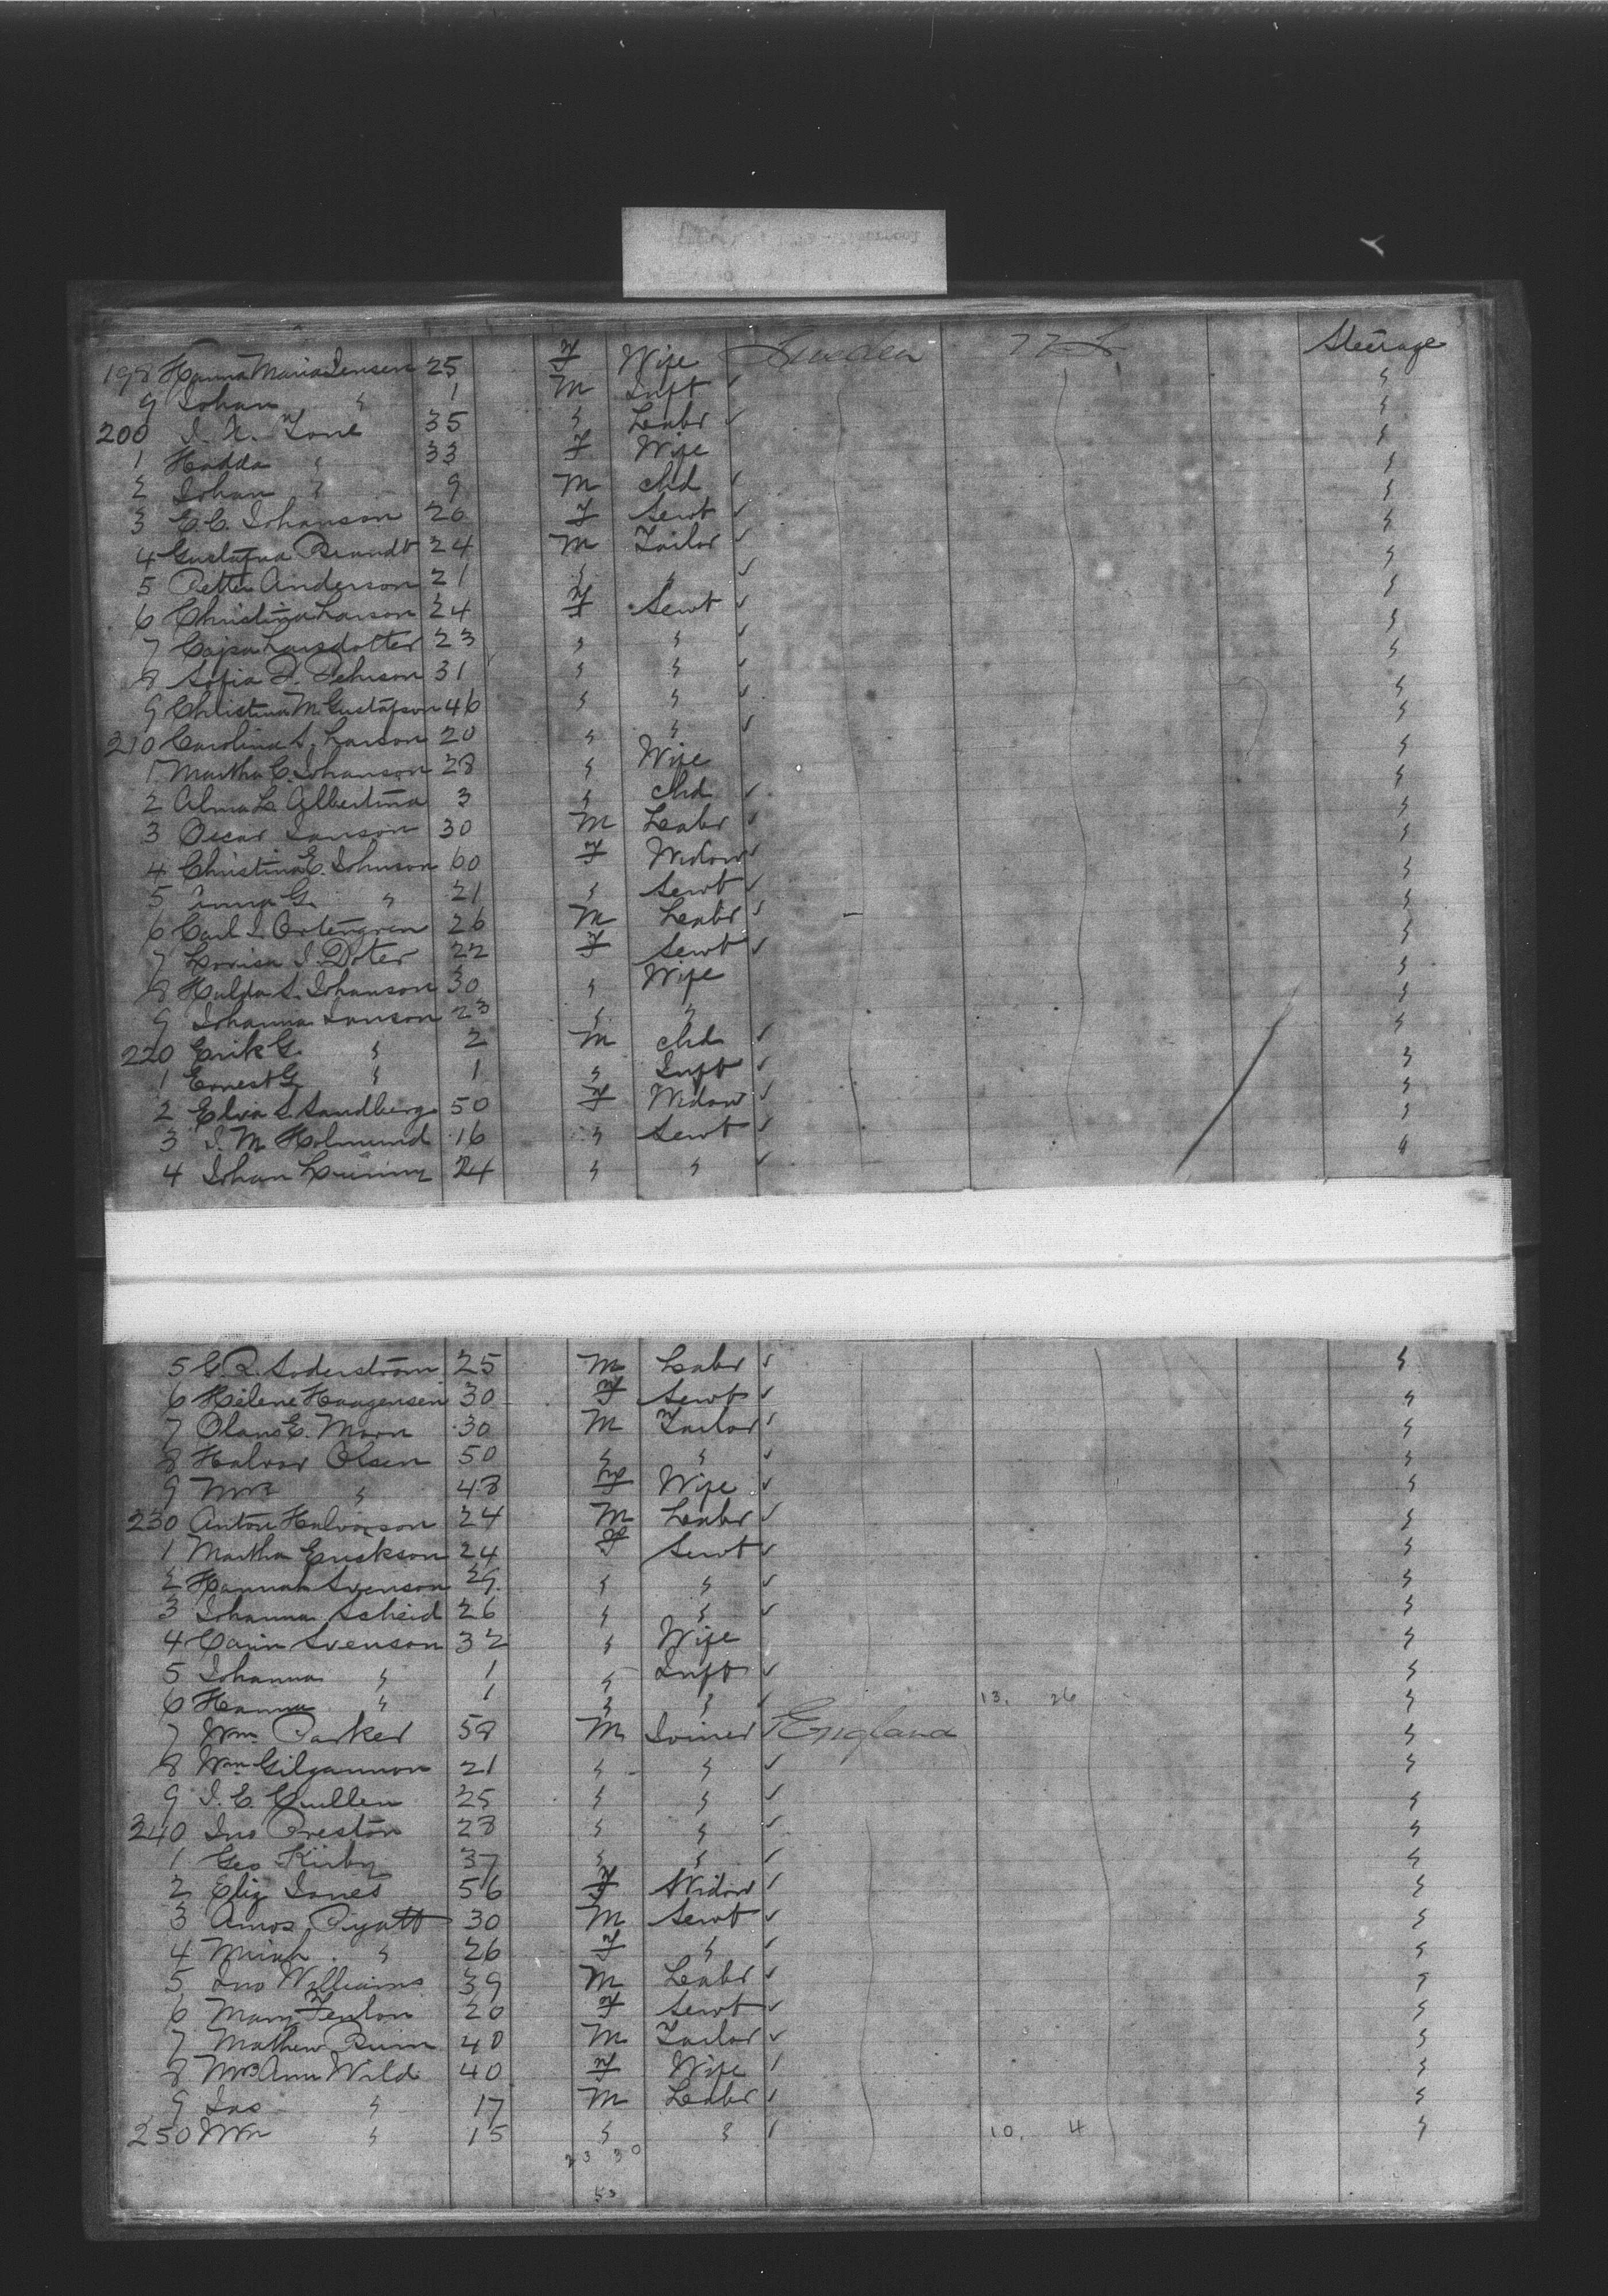 198 Hanna Maria Jensen 25 F Wife Sweden U.S. Steerage
9 Johan " 1 M Inft ✓ "
200 J. A. Tone 35 " Labr ✓ "
1 Hadda " 33 F Wife "
2 Johan " 9 M chd ✓ "
3 C. C. Johanson 26 F Servt ✓ "
4 Gustafva Brandt 24 M Tailor ✓ "
5 Petter Anderson 21 " " ✓ "
6 Christina Larson 24 F Servt ✓ "
7 Cajsa Larsdotter 23 " " ✓ "
8 Sofia P. Pehrson 31 " " ✓ "
9 Christina M. Gustafson 46 " " ✓ "
210 Carolina S. Larson 20 " " ✓ "
1 Martha C. Johanson 28 " Wife "
2 Alma L. Albertina 3 " chd ✓ "
3 Oscar Janson 30 M Labr ✓ "
4 Christina E. Johnson 60 F Widow ✓ "
5 Anna G. " 21 " Servt ✓ "
6 Carl J. Ortengren 26 M Labr ✓ "
7 Lovisa J. Doter 22 F Servt ✓ "
8 Hulda S. Johanson 30 " Wife "
9 Johanna Janson 23 " " "
220 Erik G. " 2 M chd ✓ "
1 Ernest G. " 1 " Inft ✓ "
2 Elvia S. Sandberg 50 F Widow ✓ "
3 J. M. Holmund 16 " Servt ✓ "
4 Johan 24 " " ✓ "
5 G. R. Soderström 25 M Labr ✓ "
6 Helene Haagensen 30 F Servt ✓ "
7 Olans E. Morn 30 M Tailor ✓ "
8 Halvor Olsen 50 " " ✓ "
9 Mrs " 48 F Wife ✓ "
230 Anton Halvorson 24 M Labr ✓ "
1 Martha Erickson 24 F Servt ✓ "
2 Hannah Svenson 29 " " ✓ "
3 Johanna Scheid 26 " " ✓ "
4 Carin Svenson 32 " Wife "
5 Johanna " 1 " Inft ✓ "
6 Hanna " 1 " " ✓ 13. 26 "
7 Wm Parker 58 M Joiner ✓ England "
8 Wm Gilgannon 21 " " ✓ "
9 J. E. Cullen 25 " " ✓ "
240 Jno Preston 28 " " ✓ "
1 Geo Kirby 37 " " ✓ "
2 Eliz Jones 56 F Widow ✓ "
3 Amos Pyatt 30 M Servt ✓ "
4 Miriah " 26 F " ✓ "
5 Jno Williams 39 M Labr ✓ "
6 Mary Fenton 20 F Servt ✓ "
7 Mathew Quinn 40 M Tailor ✓ "
8 Mrs Ann Wild 40 F Wife ✓ "
9 Jas " 17 M Labr ✓ "
250 Wm " 15 " " ✓ 10. 4 "
23 30
53